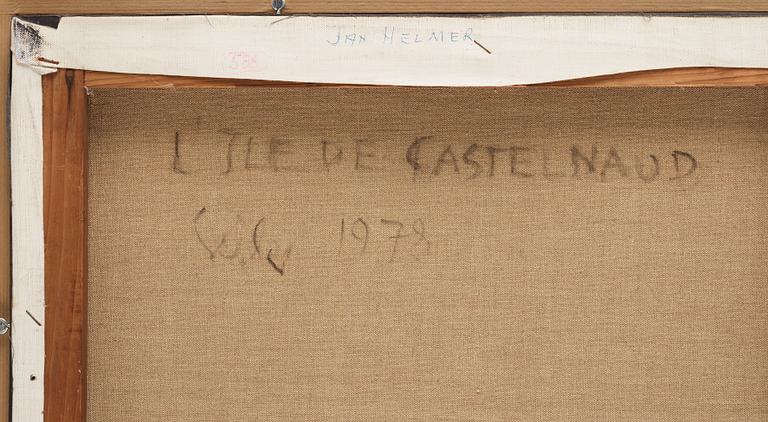 JAN HELMER
588
L'ILE DE CASTELNAUD
1978